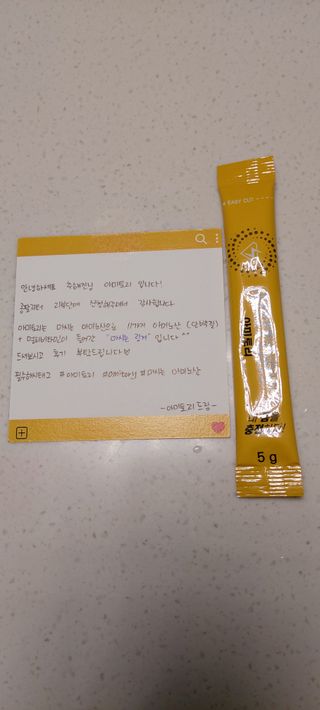 안녕하세요 아미토리 입니다!
체험단에 신청해주셔서 감사합니다.
아미토리는 마시는 아미노산으로 11가지 아미노산 (단백질)
+ 멀티비타민이 들어간 "마시는 링거" 입니다^^
드셔보시고 후기 부탁드립니다♡
필수해시태그 #아미토리 #amitory #마시는 아미노산
-아미토리 드림-
EASY CUT
아미토리
내 몸을
5 g